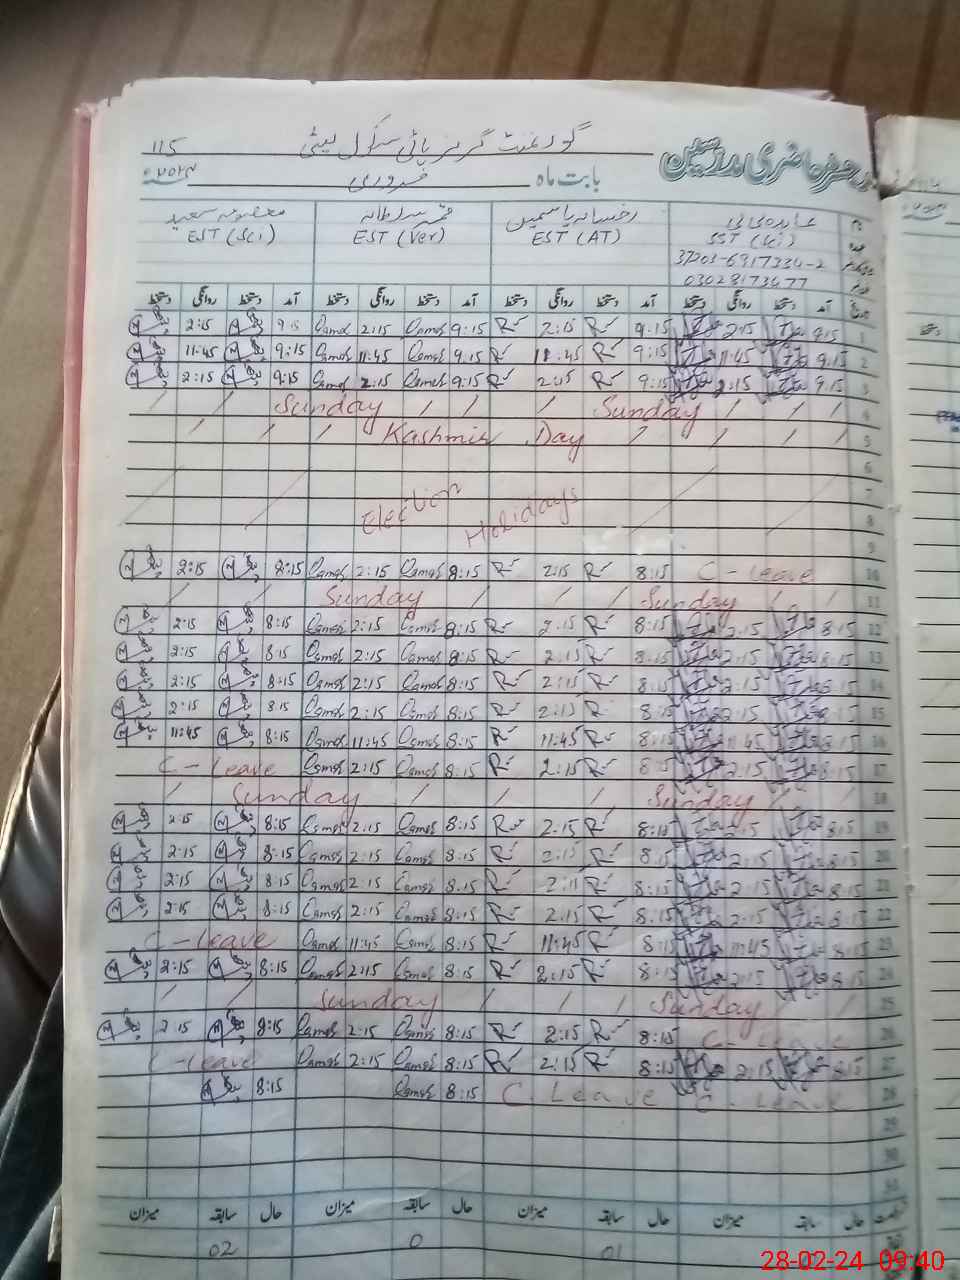 رجسٹر حاضری مدرسین گورنمنٹ گرلز ہائی سکول 115
بابت ماہ فروری ۲۰۲۴ء
عابدہ بی بی رخسانہ یاسمین قمر سلطانہ معصومہ سعید
SST (Sci) EST (AT) EST (Ver) EST (Sci)
37203-6917334-2
03028173677
آمد دستخط روانگی دستخط آمد دستخط روانگی دستخط آمد دستخط روانگی دستخط آمد دستخط روانگی دستخط
1 9:15 2:15 9:15 R 2:15 R 9:15 Qamar 2:15 Qamar 9:15 2:15
2 9:15 11:45 9:15 R 11:45 R 9:15 Qamar 11:45 Qamar 9:15 11:45
3 9:15 2:15 9:15 R 2:15 R 9:15 Qamar 2:15 Qamar 9:15 2:15
4 Sunday Sunday
5 Kashmir Day
6
7 Election Holidays
8
9
10 C-leave 8:15 R 2:15 R 8:15 Qamar 2:15 Qamar 2:15 2:15
11 Sunday Sunday
12 8:15 2:15 8:15 R 2:15 R 8:15 Qamar 2:15 Qamar 8:15 2:15
13 8:15 2:15 8:15 R 2:15 R 8:15 Qamar 2:15 Qamar 8:15 2:15
14 8:15 2:15 8:15 R 2:15 R 8:15 Qamar 2:15 Qamar 8:15 2:15
15 8:15 2:15 8:15 R 2:15 R 8:15 Qamar 2:15 Qamar 8:15 2:15
16 8:15 11:45 8:15 R 11:45 R 8:15 Qamar 11:45 Qamar 8:15 11:45
17 8:15 2:15 8:15 R 2:15 R 8:15 Qamar 2:15 Qamar C-Leave
18 Sunday Sunday
19 8:15 2:15 8:15 R 2:15 R 8:15 Qamar 2:15 Qamar 8:15 2:15
20 8:15 2:15 8:15 R 2:15 R 8:15 Qamar 2:15 Qamar 8:15 2:15
21 8:15 2:15 8:15 R 2:15 R 8:15 Qamar 2:15 Qamar 8:15 2:15
22 8:15 2:15 8:15 R 2:15 R 8:15 Qamar 2:15 Qamar 8:15 2:15
23 8:15 11:45 8:15 R 11:45 R 8:15 Qamar 11:45 Qamar C-Leave
24 8:15 2:15 8:15 R 2:15 R 8:15 Qamar 2:15 Qamar 8:15 2:15
25 Sunday Sunday
26 C-Leave 8:15 R 2:15 R 8:15 Qamar 2:15 Qamar 8:15 2:15
27 8:15 2:15 8:15 R 2:15 R 8:15 Qamar 2:15 Qamar C-leave
28 C-Leave C Leave 8:15 Qamar 8:15
29
30
حال سابقہ میزان حال سابقہ میزان حال سابقہ میزان حال سابقہ میزان
01 0 02
28-02-24 09:40